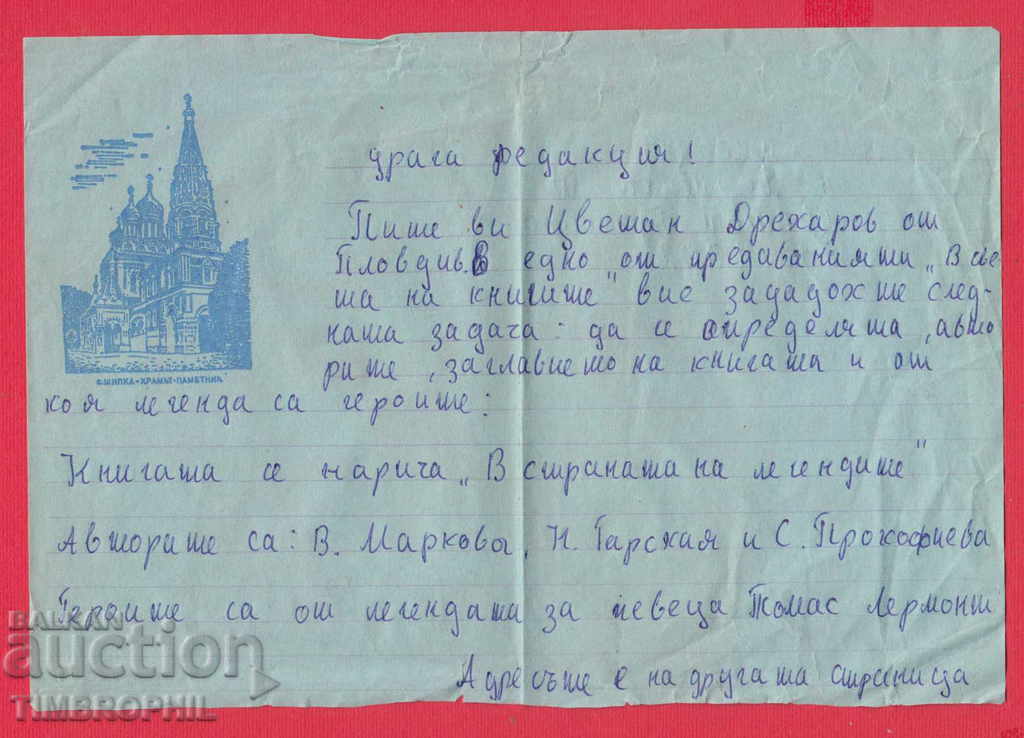 драга редакция!
Пише ви Цветан Дрехаров от
Пловдив. В едно от предаванията „В све
та на книгите" вие зададохте след-
ната задача: да се определята, авто
рите, заглавието на книгата и от
С. ШИПКА - ХРАМЪТ-ПАМЕТНИК
коя легенда са героите:
Книгата се нарича „В страната на легендите"
Авторите са: В. Маркова, Н. Гарская и С. Прокофиева
Героите са от легендата за певеца Томас Лермонт
Адресъте е на другата страница
BALKAN
auction
TIMBROPHIL